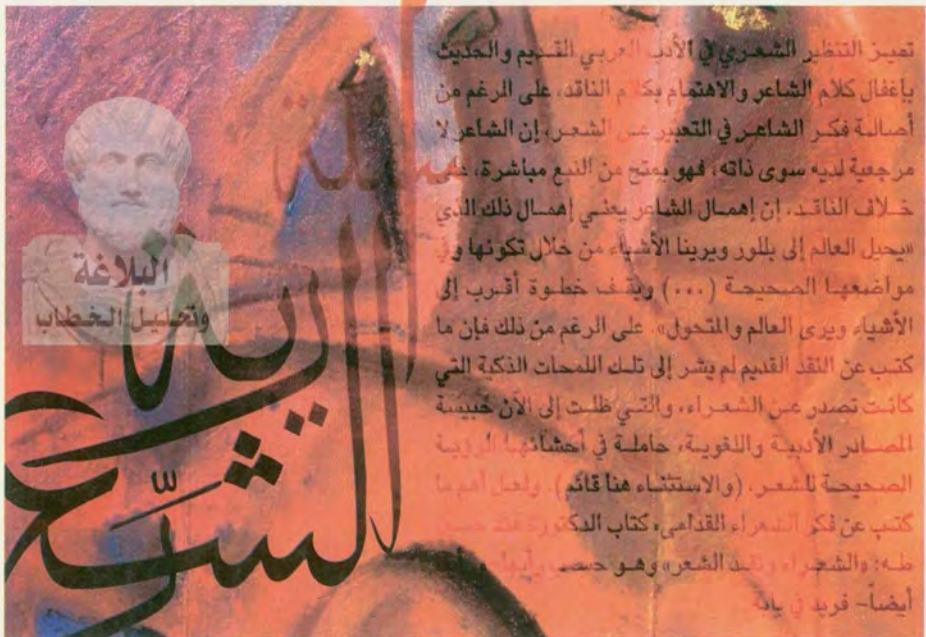 تميز التنظير الشعري في الأدب العربي القديم والحديث
بإغفال كلام الشاعر والاهتمام بكلام الناقد، على الرغم من
أصالة فكر الشاعر في التعبير عن الشعر، إن الشاعر لا
مرجعية لديه سوى ذاته، فهو يمتح من النبع مباشرة، على
خلاف الناقد. إن إهمال الشاعر يعني إهمال ذلك الذي
«يحيل العالم إلى بللور ويرينا الأشياء من خلال تكونها وفي
مواضعها الصحيحة (...) ويقف خطوة أقرب إلى
الأشياء ويرى العالم والمتحول». على الرغم من ذلك فإن ما
كتب عن النقد القديم لم يشر إلى تلك اللمحات الذكية التي
كانت تصدر عن الشعراء، والتي ظلت إلى الآن حبيسة
المصادر الأدبية واللغوية، حاملة في أحشائها الرؤية
الصحيحة للشعر. (والاستثناء هنا قائم). ولعل أهم ما
كتب عن فكر الشعراء القدامى، كتاب الدكتورة هند حسين
طه: «الشعراء ونقد الشعر» وهو حسب رأينا
أيضاً- فريد في بابه
أسئلة
الشعرية
البلاغة
وتحليل الخطاب